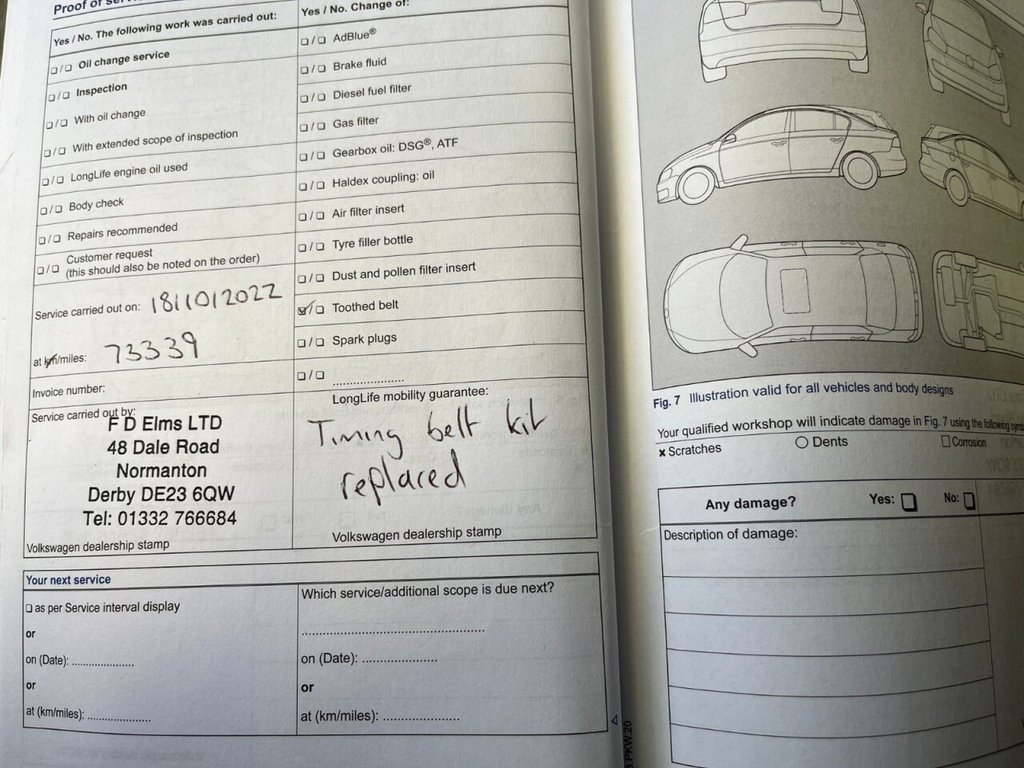 Proof of
Yes / No. The following work was carried out:
❑ / ❑ Oil change service
❑ / ❑ Inspection
❑ / ❑ With oil change
❑ / ❑ With extended scope of inspection
❑ / ❑ LongLife engine oil used
❑ / ❑ Body check
❑ / ❑ Repairs recommended
❑ / ❑ Customer request
(this should also be noted on the order)
Service carried out on: 18/10/2022
at km/miles: 73339
Invoice number:
Service carried out by:
F D Elms LTD
48 Dale Road
Normanton
Derby DE23 6QW
Tel: 01332 766684
Volkswagen dealership stamp
Yes / No. Change of:
❑ / ❑ AdBlue®
❑ / ❑ Brake fluid
❑ / ❑ Diesel fuel filter
❑ / ❑ Gas filter
❑ / ❑ Gearbox oil: DSG®, ATF
❑ / ❑ Haldex coupling: oil
❑ / ❑ Air filter insert
❑ / ❑ Tyre filler bottle
❑ / ❑ Dust and pollen filter insert
☑ / ❑ Toothed belt
❑ / ❑ Spark plugs
❑ / ❑ ......................
LongLife mobility guarantee:
Timing belt kit
replaced
Volkswagen dealership stamp
Your next service
❑ as per Service interval display
or
on (Date): ...................
or
at (km/miles): ...................
Which service/additional scope is due next?
.......................................................
on (Date): ......................
or
at (km/miles): ......................
Fig. 7 Illustration valid for all vehicles and body designs
Your qualified workshop will indicate damage in Fig. 7 using the following
× Scratches ○ Dents ❑ Corrosion
Any damage? Yes: ❑ No: ❑
Description of damage: